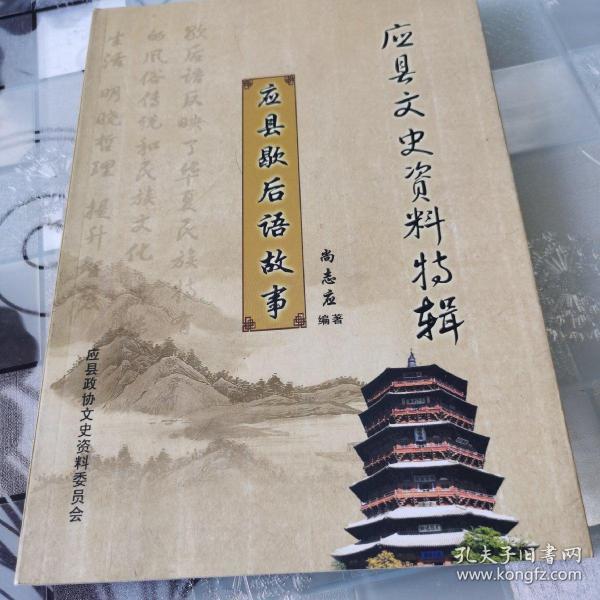 应县文史资料特辑
应县歇后语故事
尚志应
编著
歇后语反映了华夏民族特
的风俗传统和民族文化
生活 明晓哲理 提升
应县政协文史资料委员会
孔夫子旧书网
www.kongfz.com